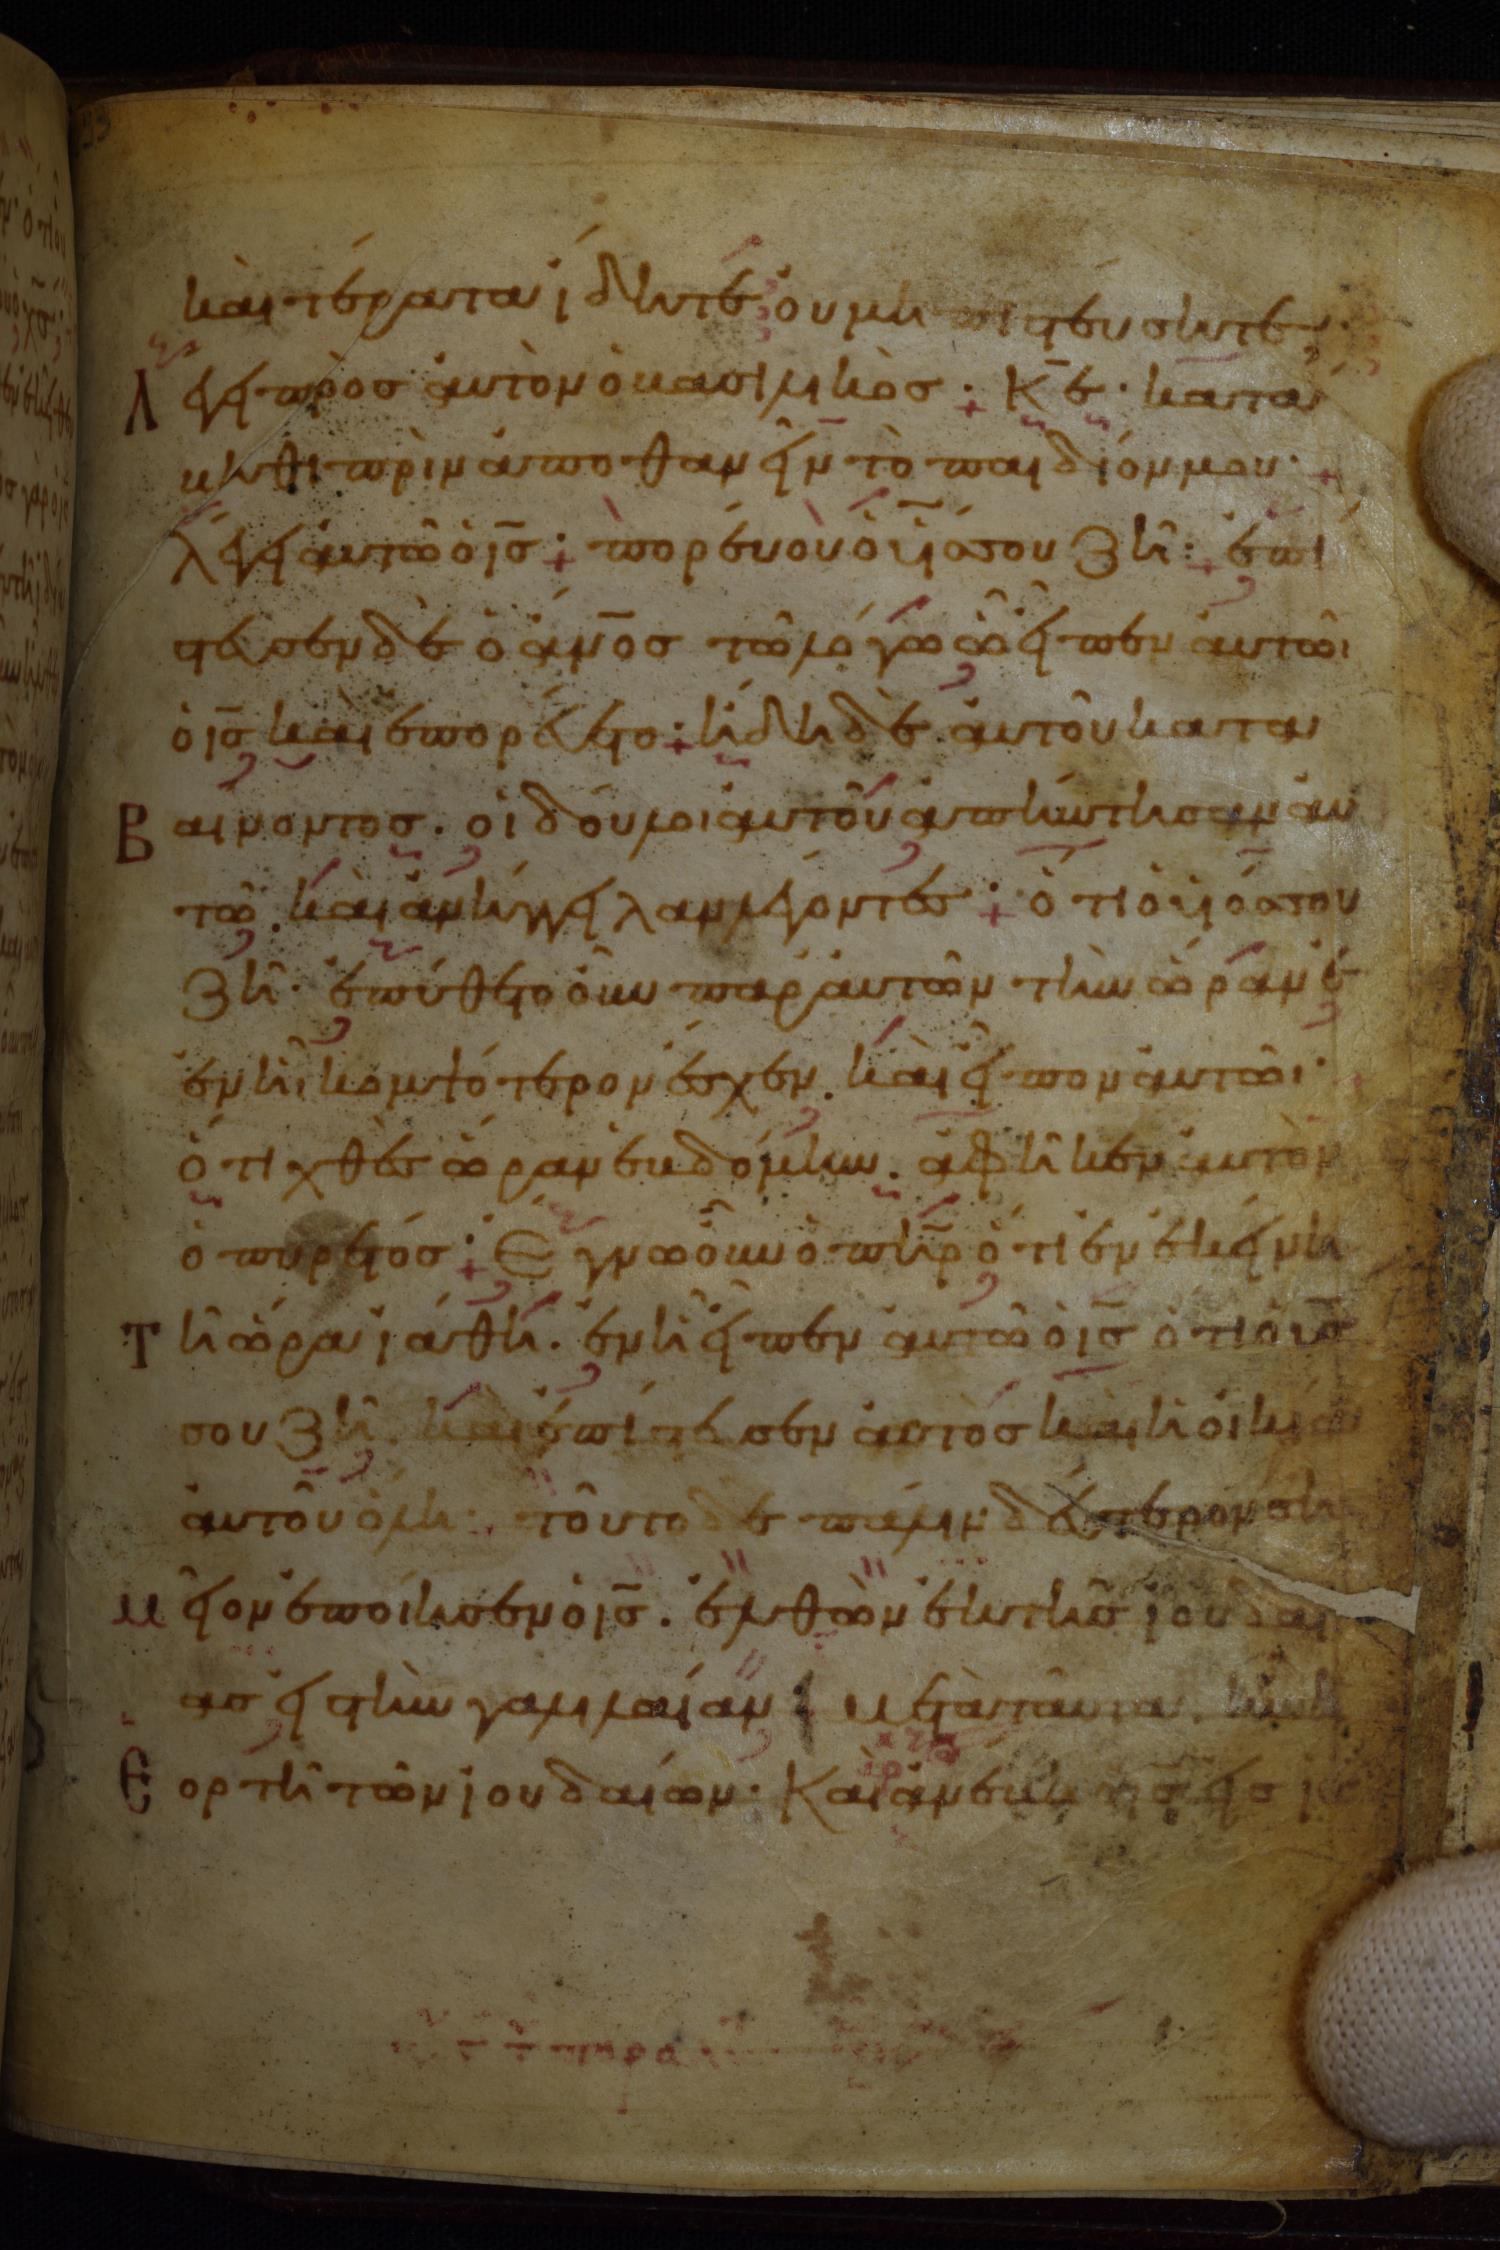 καὶ τέρατα ἴδητε ου μὴ πιστευσητε·
Λέγει πρὸσ αὐτὸν ὁ βασιλικὸσ· Κ̅ε· κατά
βηθι πρὶν ἀποθανεῖν τὸ παιδίόν μου·
λέγει αὐτῶ ὁ ι̅σ̅· πορέυου ὁ υἱόσ σου ζῆ· ἐπί
στευσεν δὲ ὁ ἀν̅οσ τῶ λόγω ὧ εἶπεν ἀυτῶι
ὁ ι̅σ̅ καὶ ἐπορέυετο· ἤδη δὲ ἀυτοῦ κατα
Βαινοντοσ. οἱ δόυλοι ἀυτοῦ ἀπήντησαν ἀυ
τῶ. καὶ ἀνήγγειλαν λέγοντεσ· ὅτι ὁ υἱόσ σου
ζῆ· ἐπύθετο ὀῦν παρ ἀυτῶν τὴν ὥραν
ἐν ἧι κομψότερον ἔσχεν. καὶ εἶπον ἀυτῶι·
ὅτι χθὲσ ὥραν ἑβδόμην. ἀφῆκεν ἀυτὸν
ὁ πυρετόσ· Ἔγνω ὀῦν ὁ π̅η̅ρ ὅτι ἐν ἐκείνη
Τῆ ὥρα ἰάθη. ἐν ἧ εἶπεν ἀυτῶ ὁ ι̅σ̅ ὅτι ὁ υ̅ς̅
σου ζῆ. καὶ ἐπίστευσεν ἀυτὸσ καὶ ἡ ὀικία
ἀυτοῦ ὅλη· τοῦτο δὲ πάλιν δέυτερον ση
μεῖον ἐποίησεν ὁ ι̅σ̅. ἐλθὼν ἐκ τῆσ ἰουδαι
ασ εἰσ τὴν γαλιλαίαν· μετὰ ταῦτα ἦν ἡ
Ἑορτὴ τῶν ἰουδαίων· Καὶ ἀνέβη